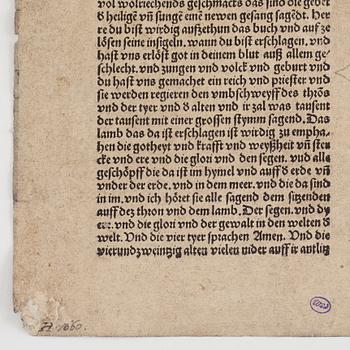 vol wolriechends geschmacks das sind die gebet
d heilige vn̄ sunge eine newen gesang sagēdt. Her
re du bist wirdig auffzethun das buch vnd auf ze
lösen seine insigeln. wann du bist erschlagen. vnd
hast vns erlöst got in deinem blut auß allem ge
schlecht. vnd zungen vnd volck vnd geburt vnd
du hast vns gemachet ein reich vnd priester vnd
sie werden regieren den vmbschweyff des thrōs
vnd der tyer vnd d alten vnd ir zal was tausent
der tausent mit einer grossen stymm sagend. Das
lamb das da ist erschlagen ist wirdig zu empha-
hen die gotheyt vnd krafft vnd weyßheit vn̄ ster
cke vnd ere vnd die glori vnd den segen. vnd alle
geschöpff die da ist im hymel vnd auff d erde vn̄
vnder der erde. vnd in dem meer. vnd die da sind
in im. vnd ich höret sie alle sagend dem sitzenden
auff dez thron vnd dem lamb. Der segen. vnd dy
ere. vnd die glori vnd der gewalt in den welten d
welt. Vnd die vier tyer sprachen Amen. Vnd die
vierundzweintzig alten vielen nider auff ir antlitz